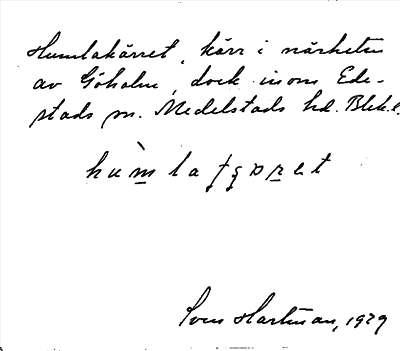 Humlakärret, kärr i närheten
av Göholm, dock inom Ede-
stads sn. Medelstads hd. Blek.
Sven Hartman, 1929